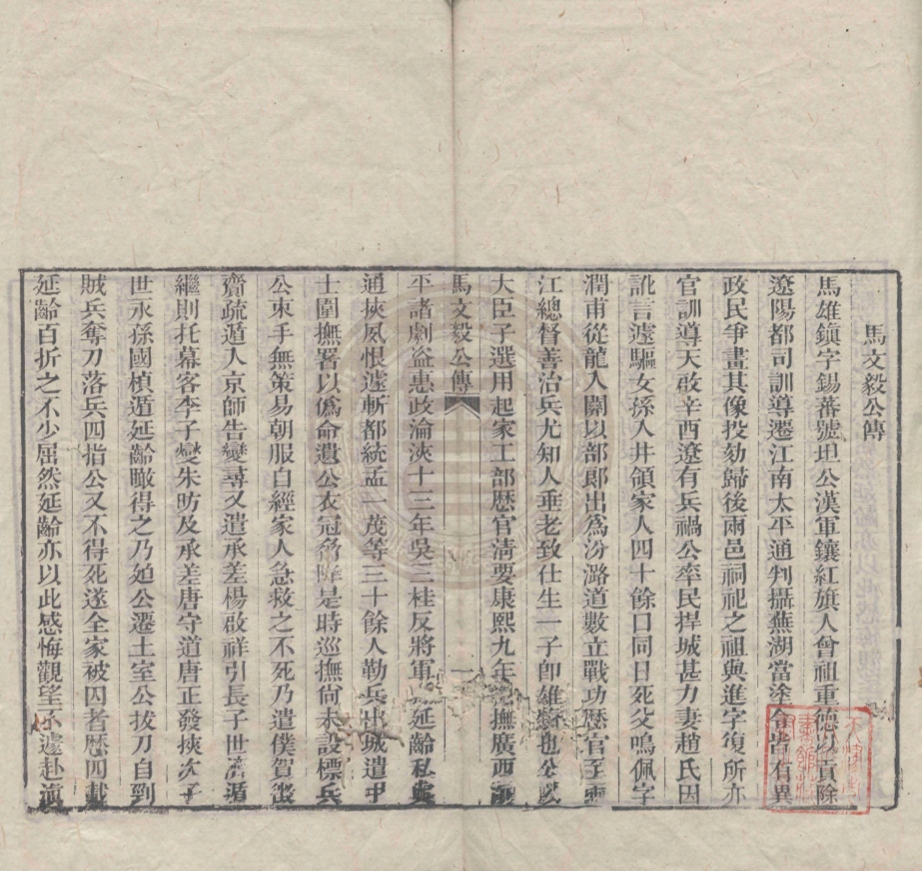 馬文毅公傳
馬雄鎭字錫蕃號坦公漢軍鑲紅旗人曾祖重德以貢除
遼陽都司訓導遷江南太平通判攝蕪湖當塗令皆有異
政民爭畫其像投劾歸後兩邑祠祀之祖與進字復所亦
官訓導天啟辛酉遼有兵禍公率民捍城甚力妻趙氏因
訛言遽驅女孫入井領家人四十餘口同日死父鳴佩字
潤甫從龍入關以部郎出爲汾潞道數立戰功歷官至兩
江總督善治兵尤知人垂老致仕生一子卽雄鎭也公以
大臣子選用起家工部歷官淸要康熙九年巡撫廣西
馬文毅公傳 一
平諸劇盜惠政淪浹十三年吳三桂反將軍孫延齡私與
通挾夙恨遽斬都統孟一茂等三十餘人勒兵出城遣甲
士圍撫署以僞命遺公衣冠脅降是時巡撫尙未設標兵
公束手無策易朝服自經家人急救之不死乃遣僕賀
齎疏遁入京師告變尋又遣承差楊啟祥引長子世濟遁
繼則托幕客李子燮朱昉及承差唐守道唐正發挾次子
世永孫國楨遁延齡瞰得之乃廹公遷土室公拔刀自刭
賊兵奪刀落兵四指公又不得死遂全家被囚者歷四載
延齡百折之不少屈然延齡亦以此感悔觀望不遽赴滇